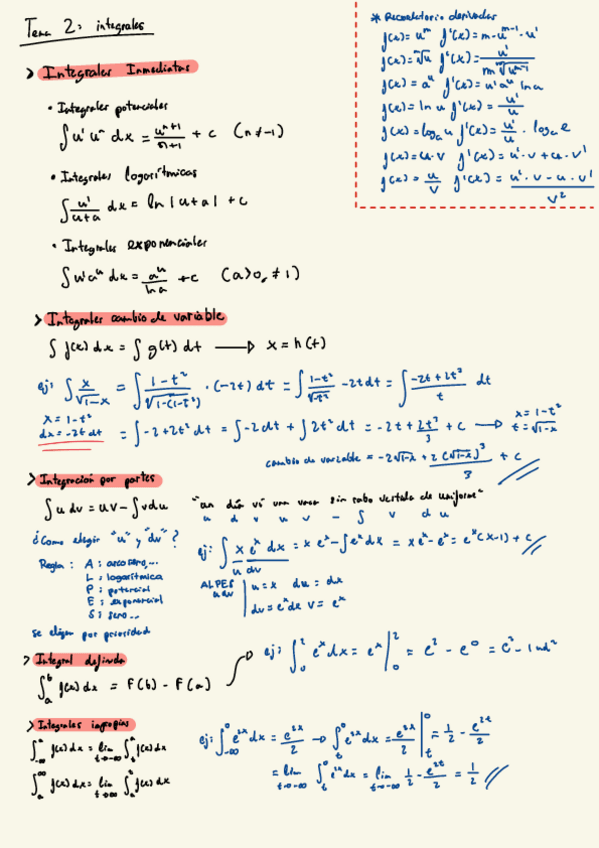 Tema 2: integrales
* Recordatorio derivadas
f(x) = u^m f'(x) = m·u^(m-1)·u'
f(x) = ᵐ√u f'(x) = u' / (m ᵐ√(u^(m-1)))
f(x) = a^u f'(x) = u' a^u ln a
f(x) = ln u f'(x) = u'/u
f(x) = log_a u f'(x) = u'/u · log_a e
f(x) = u·v f'(x) = u'·v + u·v'
f(x) = u/v f'(x) = (u'·v - u·v') / v²
> Integrales Inmediatas
• Integrales potenciales
∫ u' u^n dx = u^(n+1)/(n+1) + c (n ≠ -1)
• Integrales logorítmicas
∫ u'/(u+a) dx = ln |u+a| + c
• Integrales exponenciales
∫ u' a^u dx = a^u / ln a + c (a>0, ≠1)
> Integrales cambio de variable
∫ f(x) dx = ∫ g(t) dt → x = h(t)
ej: ∫ x/√(1-x) = ∫ (1-t²)/√(1-(1-t²)) · (-2t) dt = ∫ (1-t²)/√t² -2t dt = ∫ (-2t+2t³)/t dt
x = 1-t²
dx = -2t dt
= ∫ -2+2t² dt = ∫ -2dt + ∫ 2t² dt = -2t + 2t³/3 + c → x = 1-t²
t = √(1-x)
cambio de variable = -2√(1-x) + 2(√(1-x))³/3 + c
> Integración por partes
∫ u dv = uv - ∫ v du "un día vi una vaca sin rabo vestida de uniforme"
u d v u v - ∫ v d u
¿Como elegir "u" y "dv"?
Regla: A: arcoseno,...
L: logarítmica
P: potencial
E: exponencial
S: seno...
se eligen por prioridad
ej: ∫ x e^x dx = x e^x - ∫ e^x dx = x e^x - e^x = e^x (x-1) + c
u dv
ALPES
u dv
u = x du = dx
dv = e^x dx v = e^x
> Integral definida
∫_a^b f(x) dx = F(b) - F(a)
ej: ∫_0^2 e^x dx = e^x |_0^2 = e² - e^0 = e² - 1 ud²
> Integrales impropias
∫_-∞^a f(x) dx = lim t→-∞ ∫_t^a f(x) dx
∫_a^∞ f(x) dx = lim t→∞ ∫_a^t f(x) dx
ej: ∫_-∞^0 e^(2x) dx = e^(2x)/2 → ∫_t^0 e^(2x) dx = e^(2x)/2 |_t^0 = 1/2 - e^(2t)/2
= lim t→-∞ ∫_t^0 e^(2x) dx = lim t→-∞ 1/2 - e^(2t)/2 = 1/2